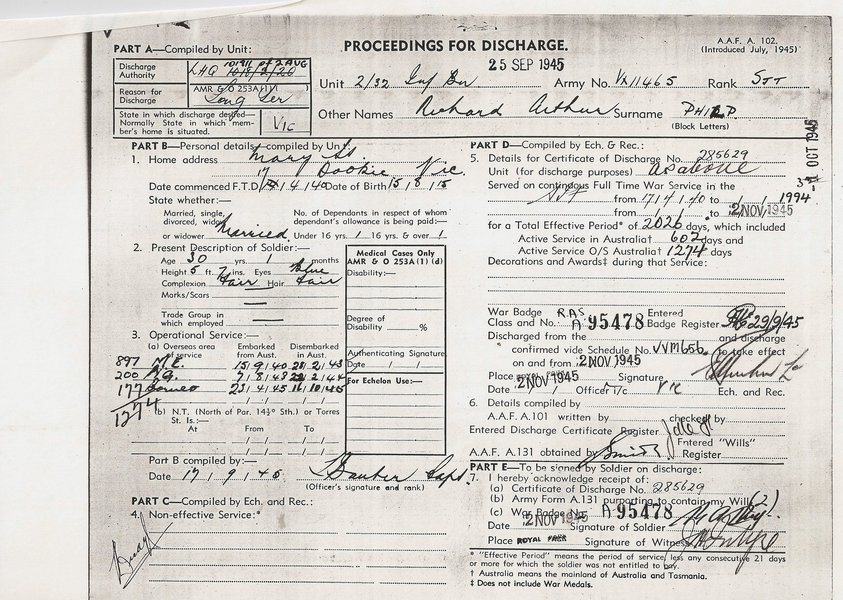 PART A—Compiled by Unit:
PROCEEDINGS FOR DISCHARGE.
A.A.F. A. 102.
(Introduced July, 1945)
25 SEP 1945
Discharge Authority
LHQ
Unit 2/32 Inf Bn Army No. VX11465 Rank SJT
Reason for Discharge
AMR & O 253A(1)( )
Long Ser
Other Names Richard Arthur Surname PHILP
(Block Letters)
State in which discharge desired—Normally State in which member's home is situated.
VIC
OCT 1945
PART B—Personal details compiled by Unit:
1. Home address Mary St
Dookie Vic.
Date commenced F.T.D. 17/4/40 Date of Birth 15/8/15
State whether:—
Married, single, divorced, widow or widower Married
No. of Dependants in respect of whom dependant's allowance is being paid:—
Under 16 yrs. 1 16 yrs. & over 1
2. Present Description of Soldier:—
Age 30 yrs. 1 months
Height 5 ft. 7 ins. Eyes Blue
Complexion Fair Hair Fair
Marks/Scars —
Trade Group in which employed —
Medical Cases Only
AMR & O 253A(1)(d)
Disability:—
Degree of Disability %
Authenticating Signature
Date / /
For Echelon Use:—
3. Operational Service:—
(a) Overseas area of service
Embarked from Aust.
Disembarked in Aust.
897 M.E. 15 9 40 28 2 43
200 N.G. 7 8 43 22 2 44
177 Borneo 23 4 45 16 10 45
1274
(b) N.T. (North of Par. 14½° Sth.) or Torres St. Is.:—
At From To
Part B compiled by:—
Date 17/9/45
Capt.
(Officer's signature and rank)
PART C—Compiled by Ech. and Rec.:—
4. Non-effective Service:*
PART D—Compiled by Ech. & Rec.:
5. Details for Certificate of Discharge No. 285629
Unit (for discharge purposes) as above
Served on continuous Full Time War Service in the
from 17/4/40 to / / 1994
from / / to 2 NOV 1945
for a Total Effective Period* of 2026 days, which included
Active Service in Australia† 602 days and
Active Service O/S Australia† 1274 days
Decorations and Awards‡ during that Service:
War Badge Class and No. R.A.S. A 95478 Entered Badge Register 29/9/45
Discharged from the and discharge
confirmed vide Schedule No. VVM656 to take effect
on and from 2 NOV 1945
Place Signature
Date 2 NOV 1945 Officer i/c Vic Ech. and Rec.
6. Details compiled by
A.A.F. A.101 written by checked by
Entered Discharge Certificate Register
Entered "Wills"
A.A.F. A.131 obtained by Smith Register
PART E—To be signed by Soldier on discharge:
7. I hereby acknowledge receipt of:
(a) Certificate of Discharge No. 285629
(b) Army Form A.131 purporting to contain my Will (2)
(c) War Badge No. A 95478
Date 2 NOV 1945 Signature of Soldier
Place ROYAL PARK Signature of Witness
* "Effective Period" means the period of service, less any consecutive 21 days
or more for which the soldier was not entitled to pay.
† Australia means the mainland of Australia and Tasmania.
‡ Does not include War Medals.